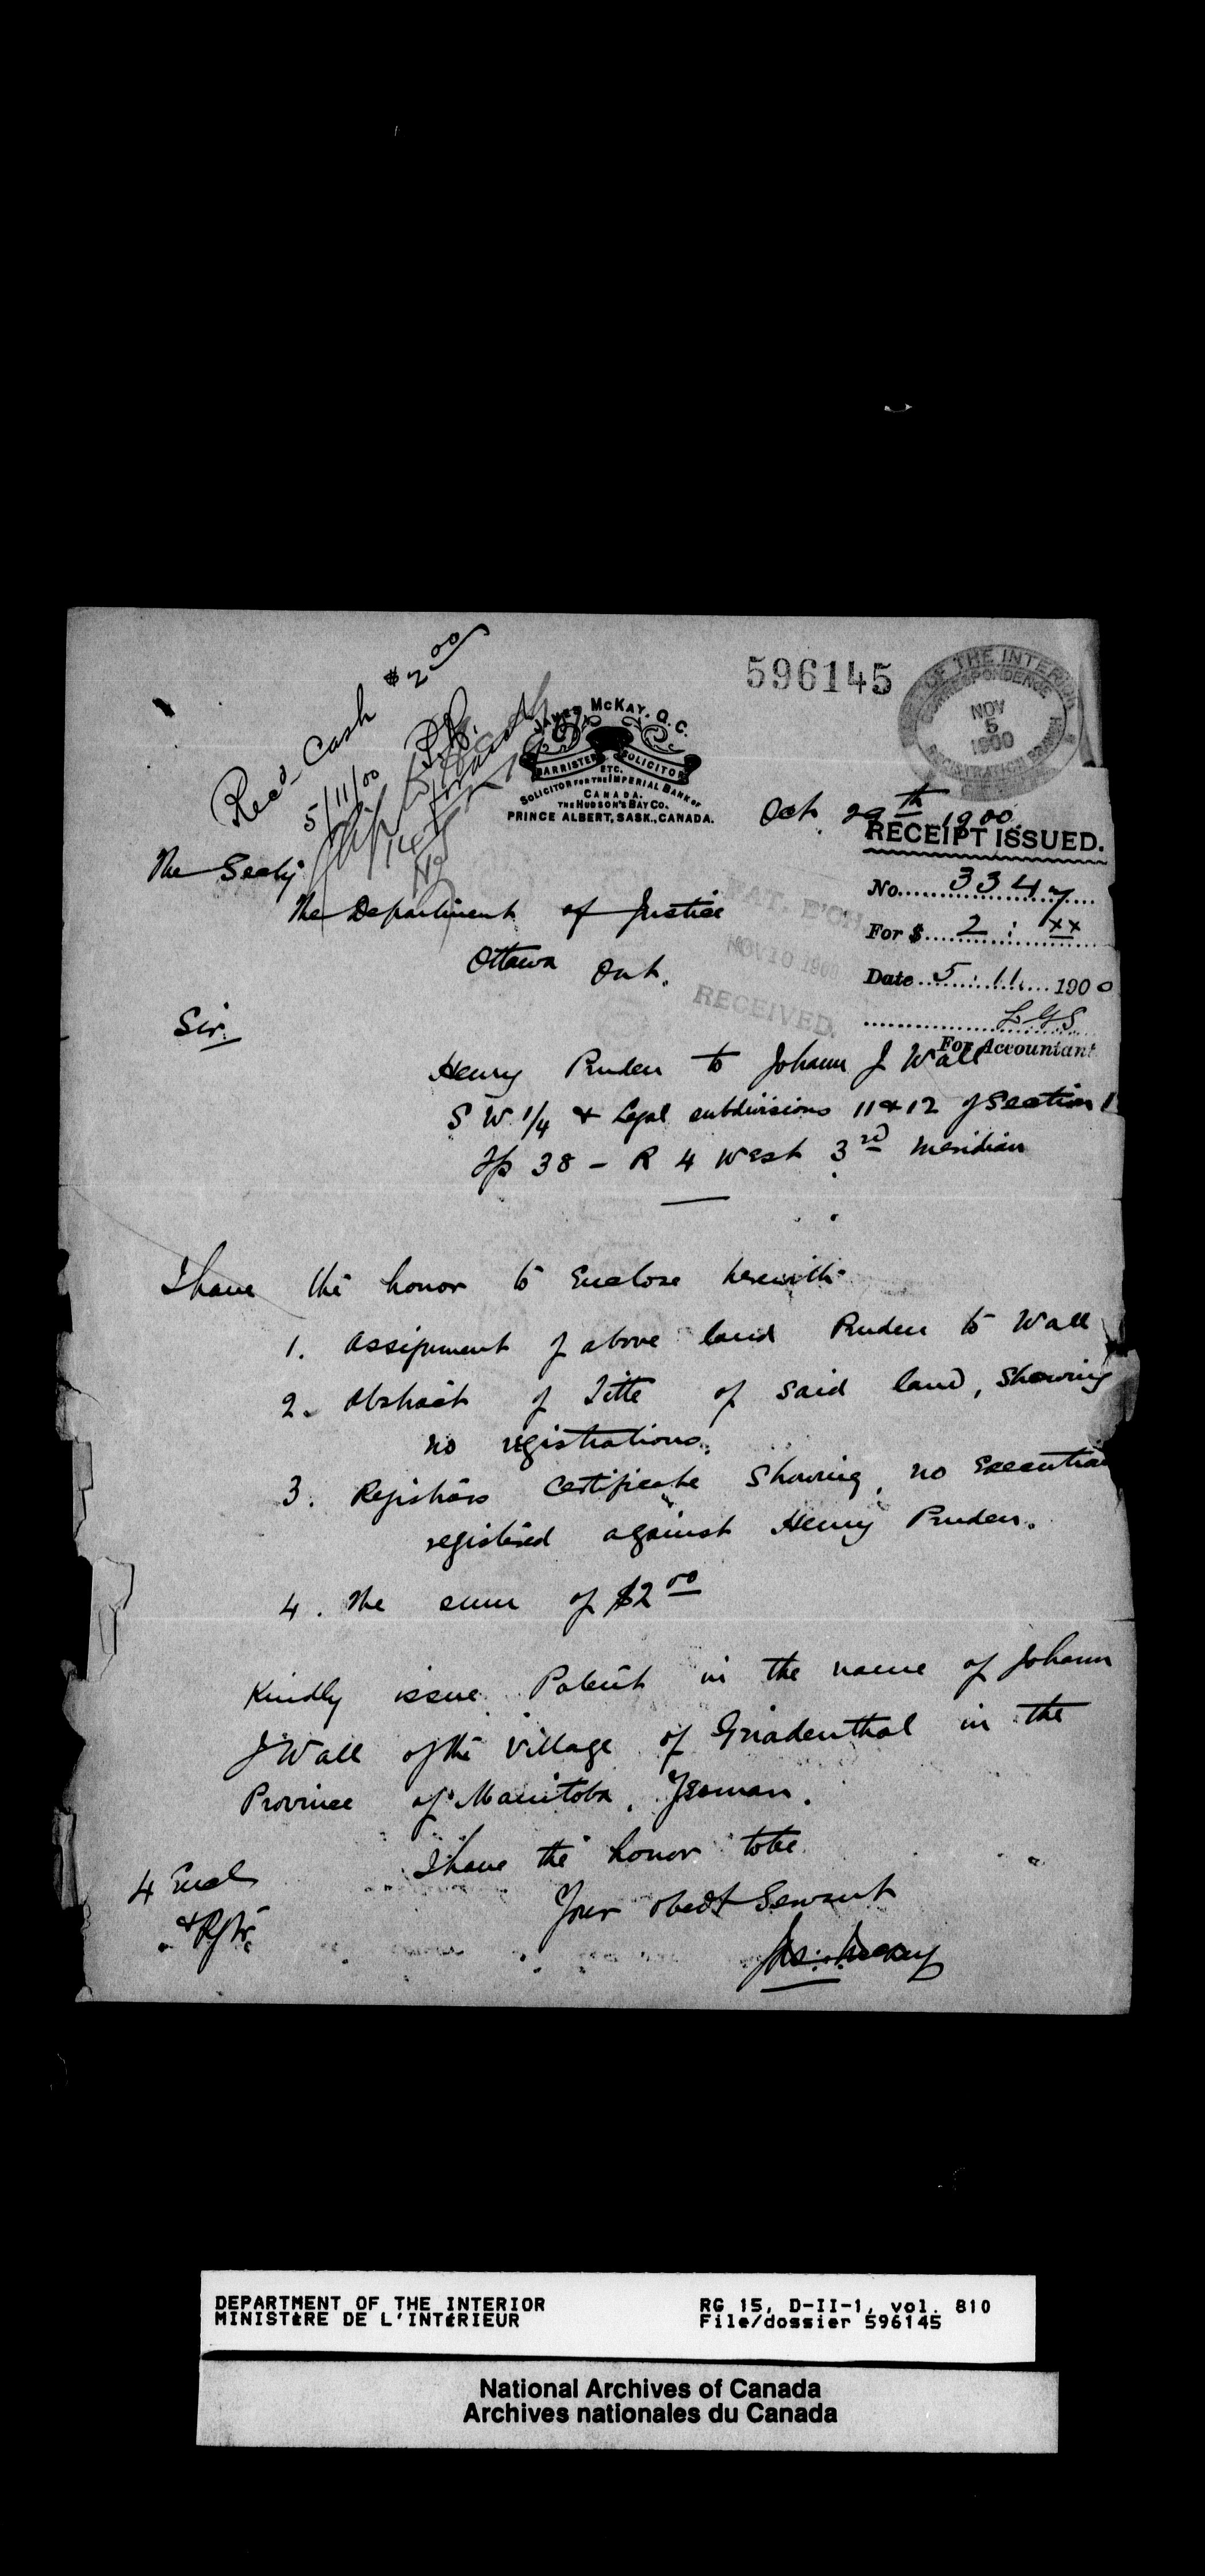 596145
DEPT OF THE INTERIOR
CORRESPONDENCE
NOV
5
1900
REGISTRATION BRANCH
Recd Cash $2.00
5/11/00
JAMES MCKAY, Q.C.
BARRISTER SOLICITOR
ETC.
SOLICITOR FOR THE IMPERIAL BANK OF
CANADA.
THE HUDSON'S BAY CO.
PRINCE ALBERT, SASK., CANADA.
Oct 29th 1900.
RECEIPT ISSUED.
No. 3347
For $ 2 : xx
Date 5.11. 1900
LGS
For Accountant
PAT. E'CH.
NOV 10 1900
RECEIVED.
The Secty
The Department of Justice
Ottawa Ont.
Sir.
Henry Pruden to Johann J Wall
S W. 1/4 & Legal subdivisions 11 & 12 of Section 1
Tp 38 - R 4 West 3rd Meridian
I have the honor to Enclose herewith
1. Assignment of above land Pruden to Wall
2. Abstract of Title of said land, showing
no registrations.
3. Registrars Certificate Showing no Execution
registered against Henry Pruden.
4. The sum of $2 00
Kindly issue Patent in the name of Johann
J Wall of the Village of Gnadenthal in the
Province of Manitoba, Yeoman.
I have the honor to be
Your obedt Servant
Jas. McKay
4 Encl
& Rgtr.
DEPARTMENT OF THE INTERIOR
MINISTÈRE DE L'INTÉRIEUR
RG 15, D-II-1, vol. 810
File/dossier 596145
National Archives of Canada
Archives nationales du Canada